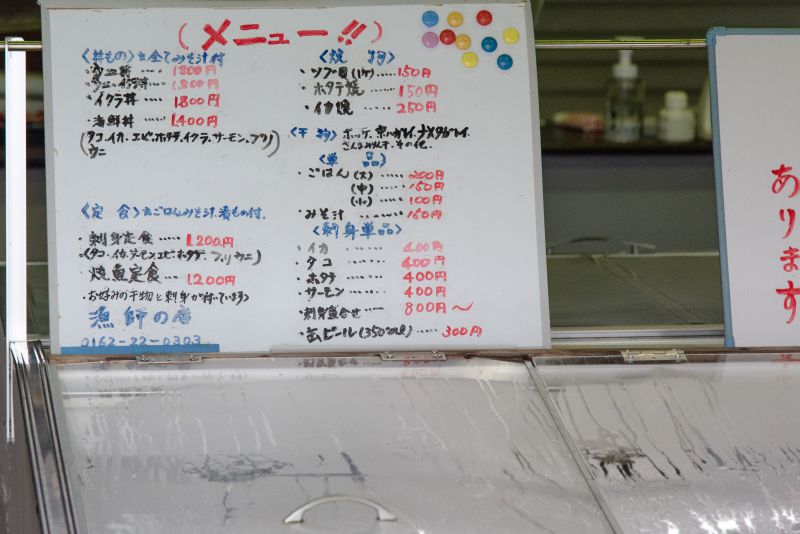 (メニュー!!)
〈丼もの〉全てみそ汁付
・ウニ丼 ‥‥ 1800円
・ウニ・イクラ丼 ‥‥ 1800円
・イクラ丼 ‥‥ 1800円
・海鮮丼 ‥‥ 1400円
(タコ、イカ、エビ、ホタテ、イクラ、サーモン、ブリ
ウニ)
〈定食〉ごはんみそ汁、漬もの付.
・刺身定食 ‥‥ 1200円
(タコ、イカ、サーモン、エビ、ホタテ、ブリ、ウニ)
・焼魚定食 ‥‥ 1200円
・お好みの干物と刺身が付いています〉
漁師の店
0162-22-0303
〈焼物〉
・ツブ貝(1ケ) ‥‥ 150円
・ホタテ焼 ‥‥ 150円
・イカ焼 ‥‥‥ 250円
〈干物〉ホッケ、
さんまみりん干、その他、
〈単品〉
・ごはん(大) ‥‥‥ 200円
(中) ‥‥‥ 150円
(小) ‥‥‥ 100円
・みそ汁 ‥‥‥‥ 150円
〈刺身単品〉
・イカ ‥‥‥ 400円
・タコ ‥‥‥ 400円
・ホタテ ‥‥‥ 400円
・サーモン ‥‥‥ 400円
・刺身盛合せ ‥‥ 800円〜
・缶ビール(350ml) ‥‥ 300円
あります